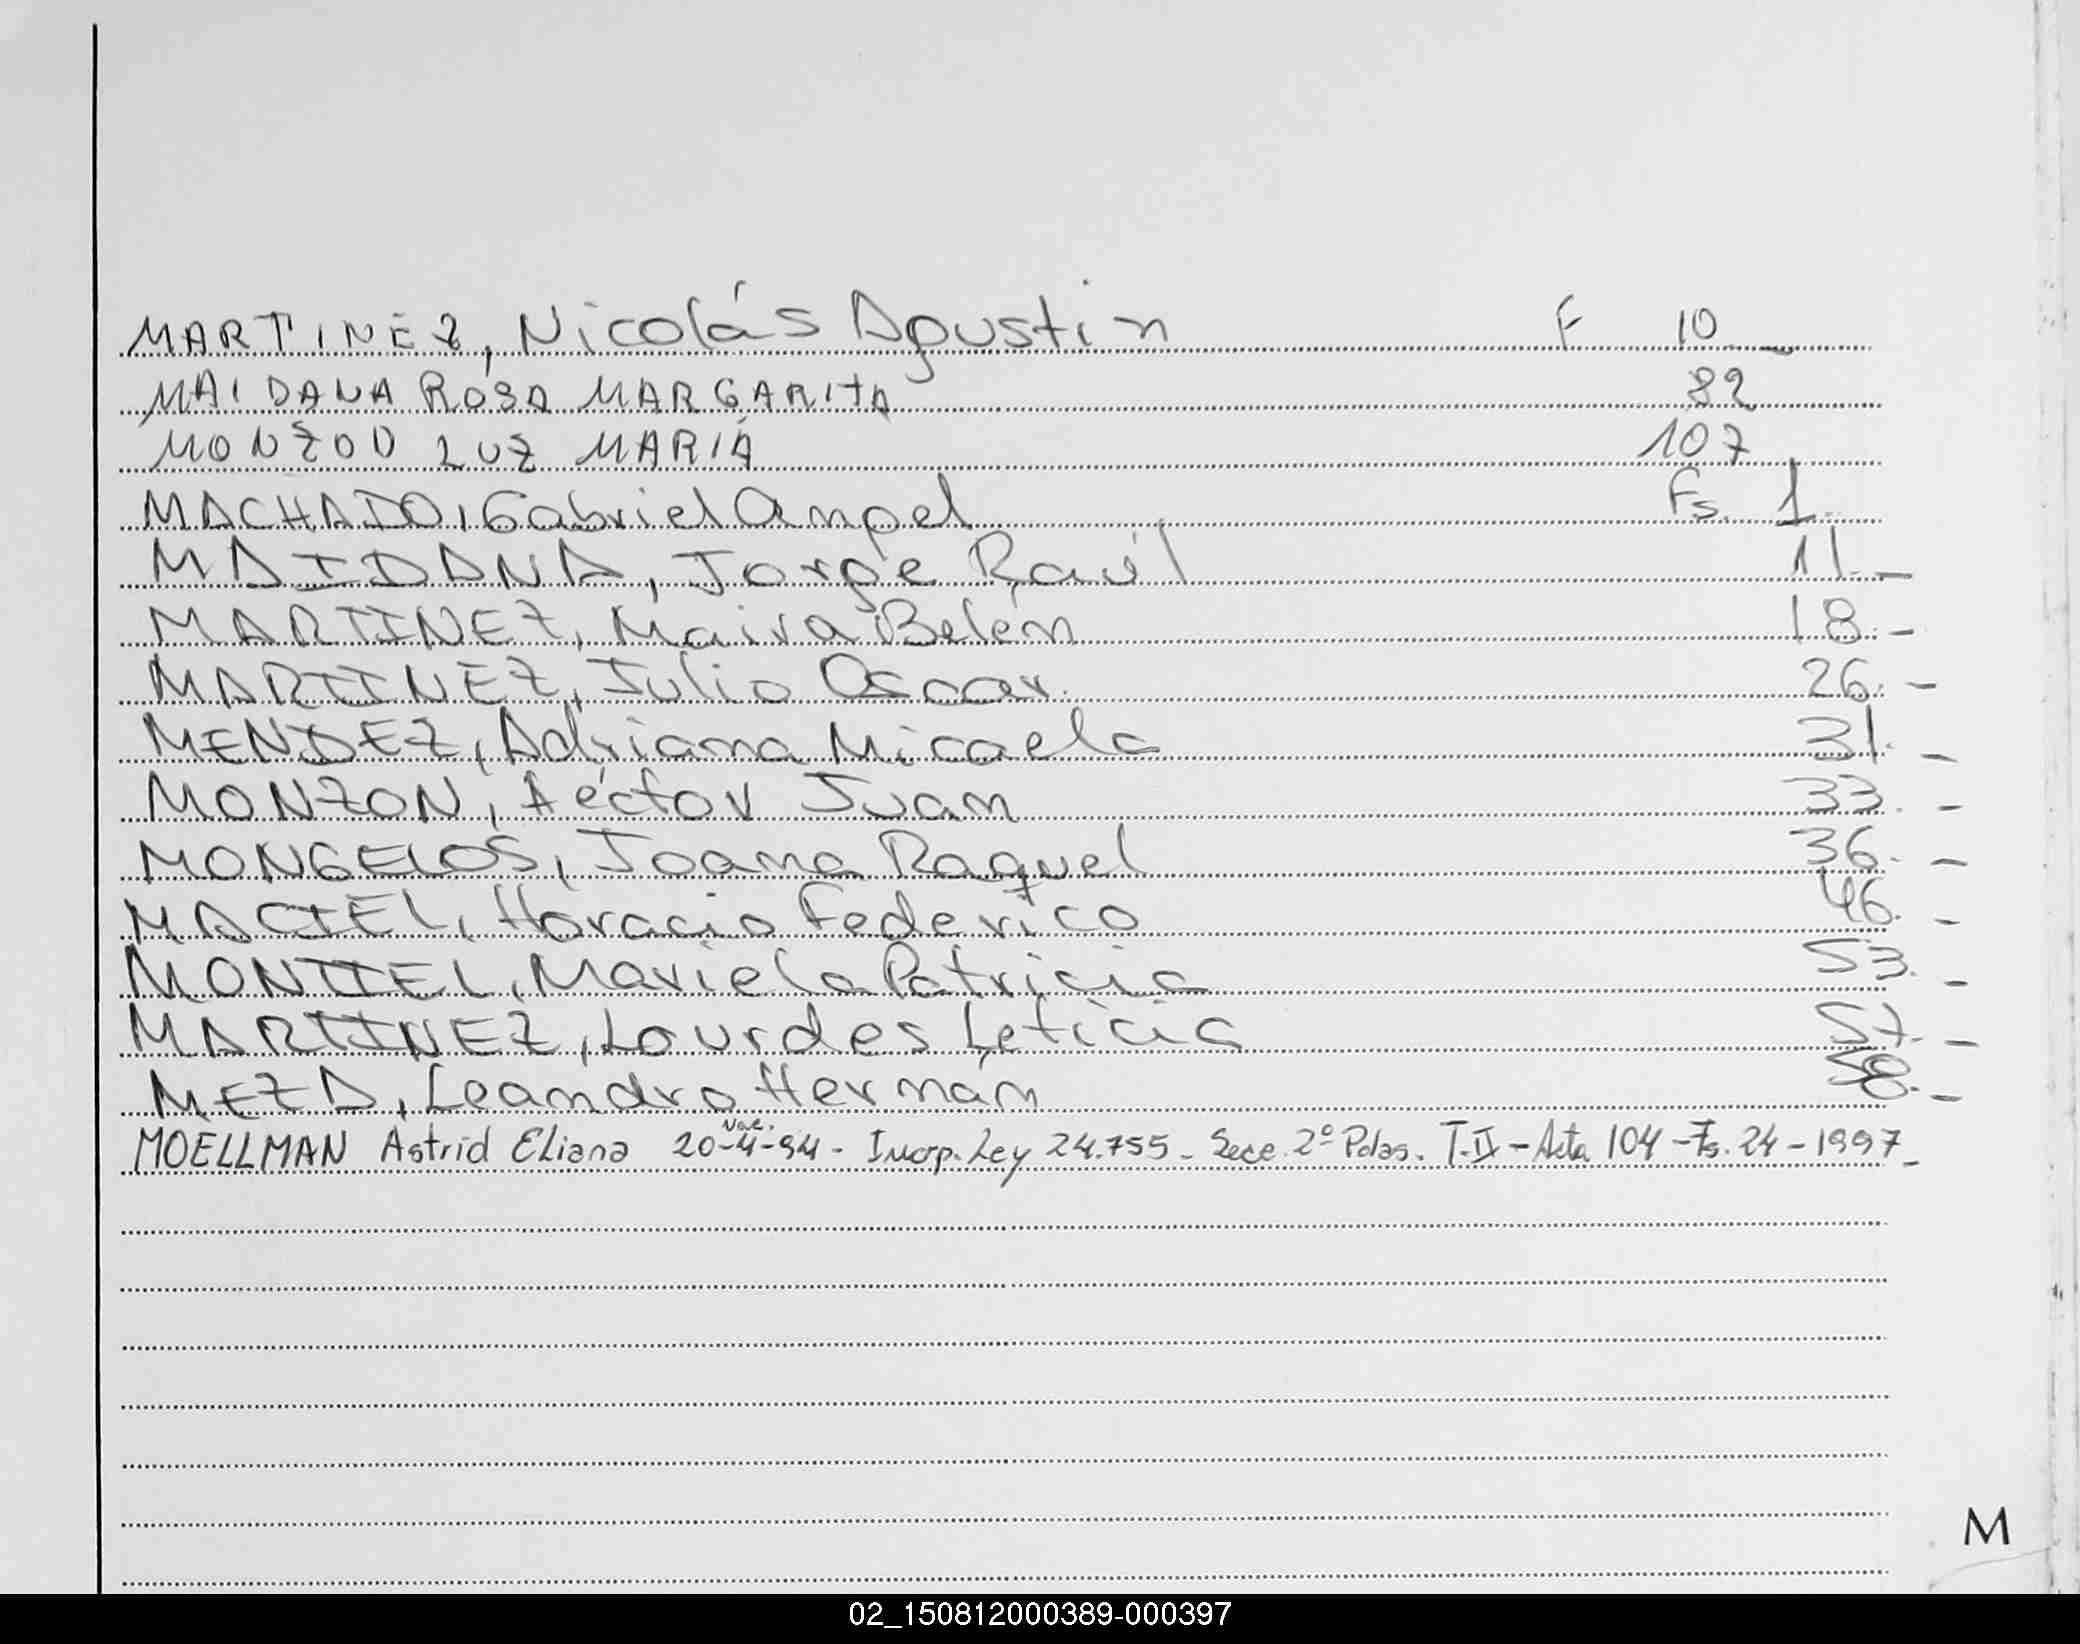 MARTINEZ, Nicolás Agustin F 10._
MAIDANA ROSA MARGARITA 82
MONZON LUZ MARIA 107
MACHADO, Gabriel Angel Fs. 1.
MAIDANA, Jorge Raúl 11._
MARTINEZ, Maira Belén 18.-
MARTINEZ, Julio Oscar. 26.-
MENDEZ, Adriana Micaela 31.-
MONZON, Héctor Juan 33.-
MONGELOS, Joana Raquel 36.-
MACIEL, Horacio Federico 46.-
MONTIEL, Mariela Patricia 53.-
MARTINEZ, Lourdes Leticia 57.-
MEZA, Leandro Hernán 58.-
MOELLMAN Astrid Eliana Nac. 20-4-94 - Inscrp. Ley 24.755 - Secc. 2º Pdas. T.II - Acta 104 - Fs. 24 - 1997_
M
02_150812000389-000397